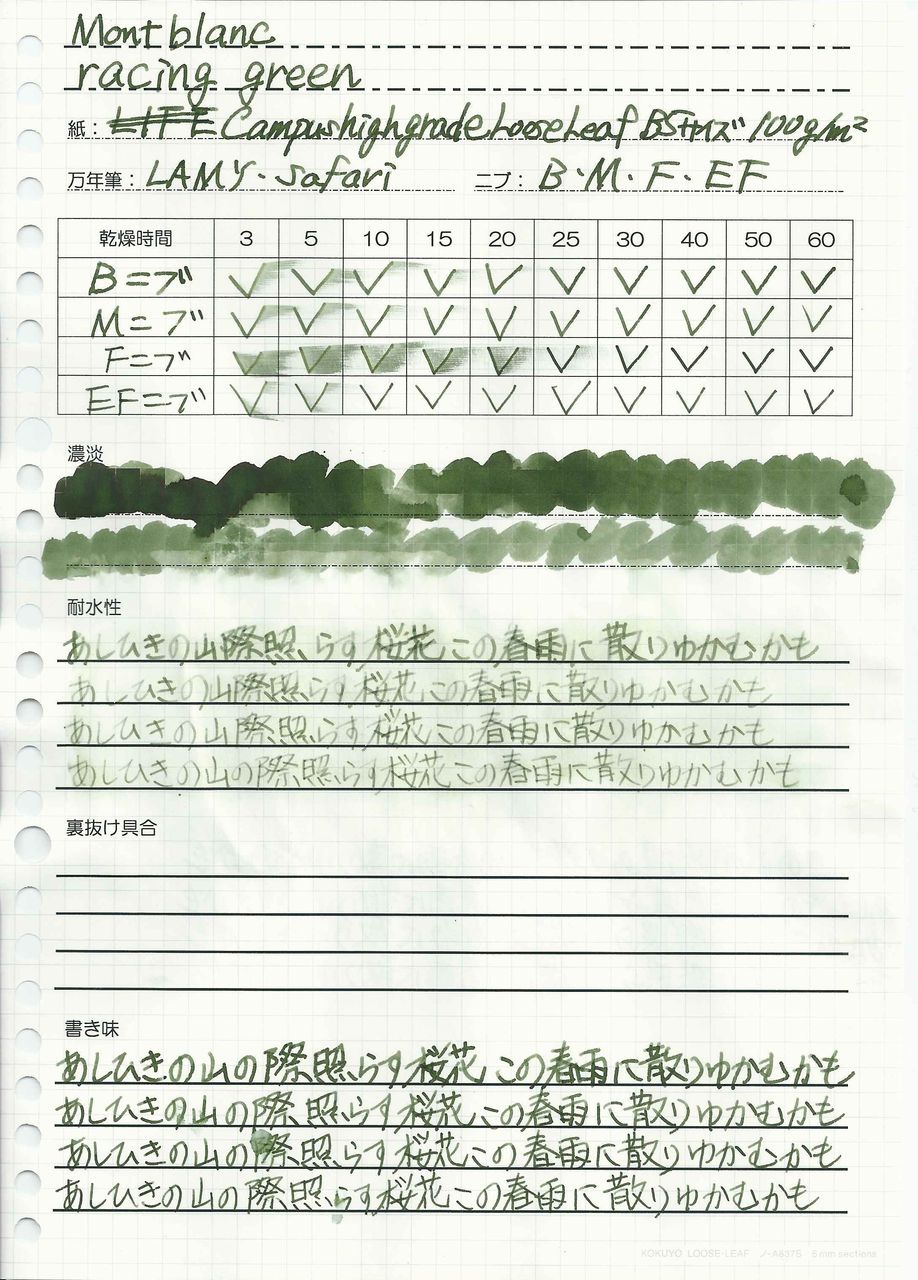 Montblanc
racing green
紙： LIFE Campus high grade Loose Leaf B5サイズ 100g/m²
万年筆： LAMY・safari ニブ： B・M・F・EF
乾燥時間 3 5 10 15 20 25 30 40 50 60
Bニブ
Mニブ
Fニブ
EFニブ
濃淡
耐水性
あしひきの山際照らす桜花この春雨に散りゆかむかも
あしひきの山際照らす桜花この春雨に散りゆかむかも
あしひきの山際照らす桜花この春雨に散りゆかむかも
あしひきの山の際照らす桜花この春雨に散りゆかむかも
裏抜け具合
書き味
あしひきの山の際照らす桜花この春雨に散りゆかむかも
あしひきの山の際照らす桜花この春雨に散りゆかむかも
あしひきの山の際照らす桜花この春雨に散りゆかむかも
あしひきの山の際照らす桜花この春雨に散りゆかむかも
KOKUYO LOOSE-LEAF ノ-A837S 5mm sections